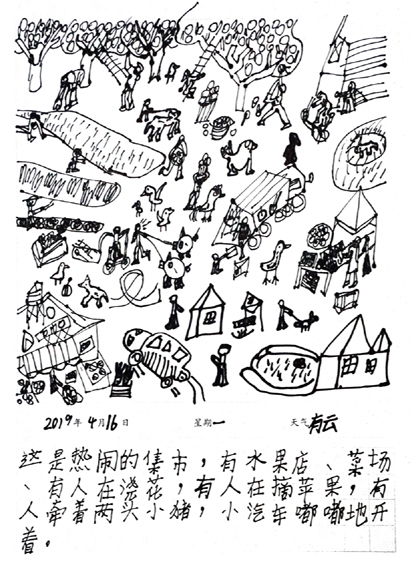 2019年4月16日 星期一 天气有云
这是热闹的集市，有水果店、菜场
、有人在浇花，有人在摘苹果，有
人牵着两头小猪，小汽车嘟嘟地开
着。